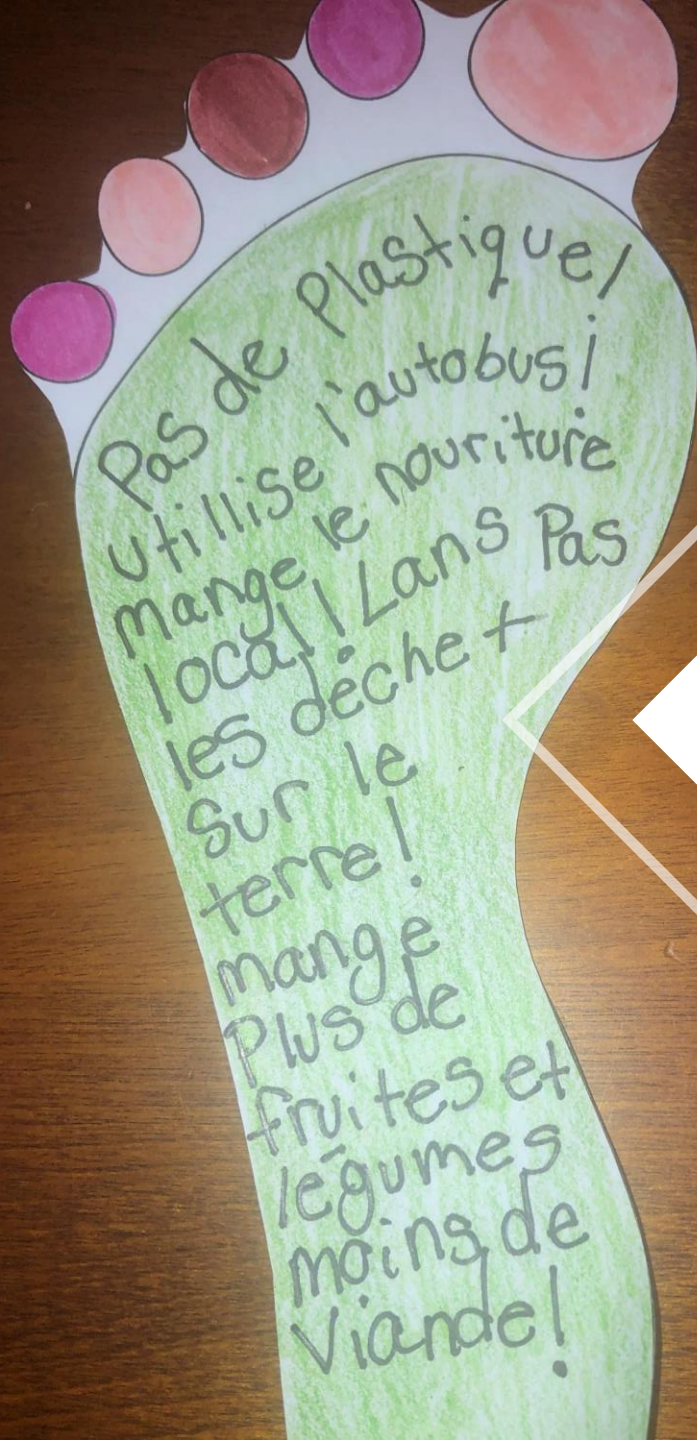 Pas de Plastique!
utillise l'autobus!
mange le nouriture
local! Lans Pas
les déchet
sur le
terre!
mange
Plus de
fruites et
légumes
moins de
viande!